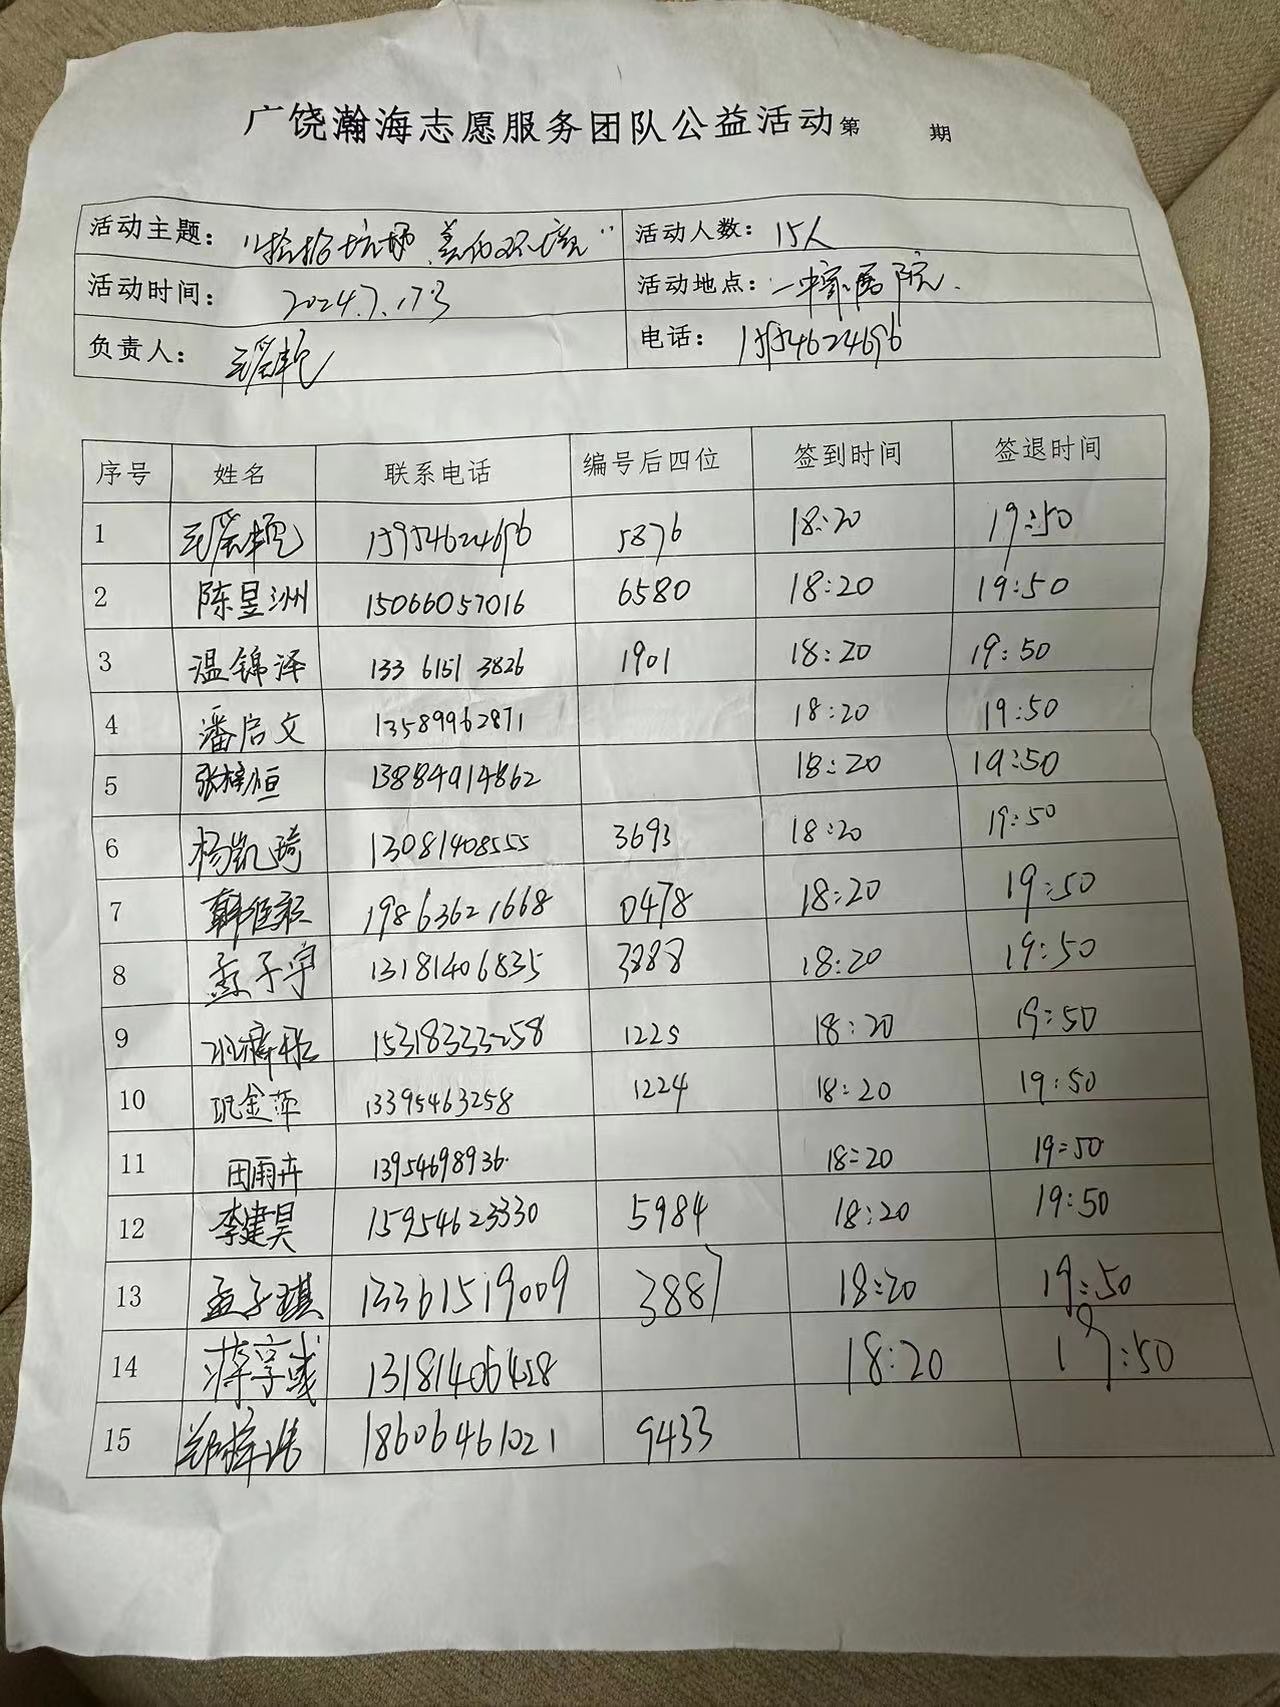 广饶瀚海志愿服务团队公益活动第 期
活动主题： "捡拾垃圾 美化环境" 活动人数： 15人
活动时间： 2024.7.17 活动地点： 一中 医院.
负责人： 电话：
序号 姓名 联系电话 编号后四位 签到时间 签退时间
1 5876 18:20 19:50
2 陈昱洲 15066057016 6580 18:20 19:50
3 温锦泽 133 6151 3826 1901 18:20 19:50
4 潘启文 13589962871 18:20 19:50
5 张梓恒 13884914862 18:20 19:50
6 杨凯琦 13081408555 3693 18:20 19:50
7 19863621668 0478 18:20 19:50
8 孟子宇 13181406835 3888 18:20 19:50
9 15318333258 1225 18:20 19:50
10 巩金萍 13395463258 1224 18:20 19:50
11 田雨卉 13954698936. 18:20 19:50
12 李建昊 15954623330 5984 18:20 19:50
13 孟子琪 13361519009 3887 18:20 19:50
14 18:20 19:50
15 18606461021 9433